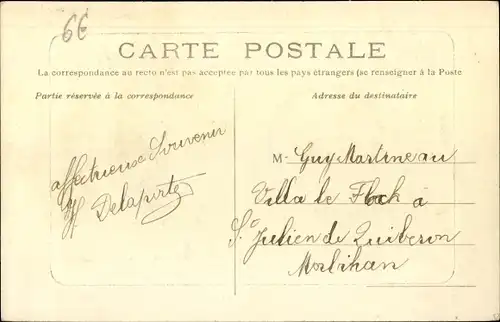 6€
CARTE POSTALE
La correspondance au recto n'est pas acceptée par tous les pays étrangers (se renseigner à la Poste
Partie réservée à la correspondance
Adresse du destinataire
affectueux Souvenir
Delaporte
M. Guy Martineau
Villa le Floch à
St Julien de Quiberon
Morbihan